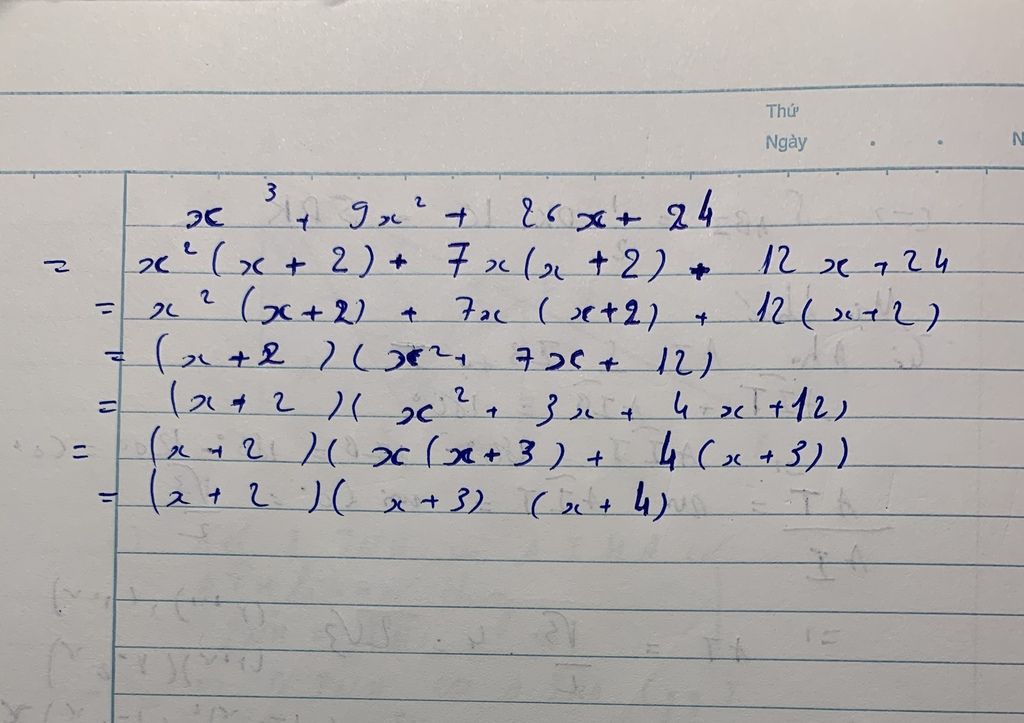 Thứ
Ngày
N
x³ + 9x² + 26x + 24
= x²(x + 2) + 7x(x + 2) + 12x + 24
= x²(x+2) + 7x(x+2) + 12(x+2)
= (x+2)(x² + 7x + 12)
= (x+2)(x² + 3x + 4x+12)
= (x+2)(x(x+3) + 4(x+3))
= (x+2)(x+3)(x+4)